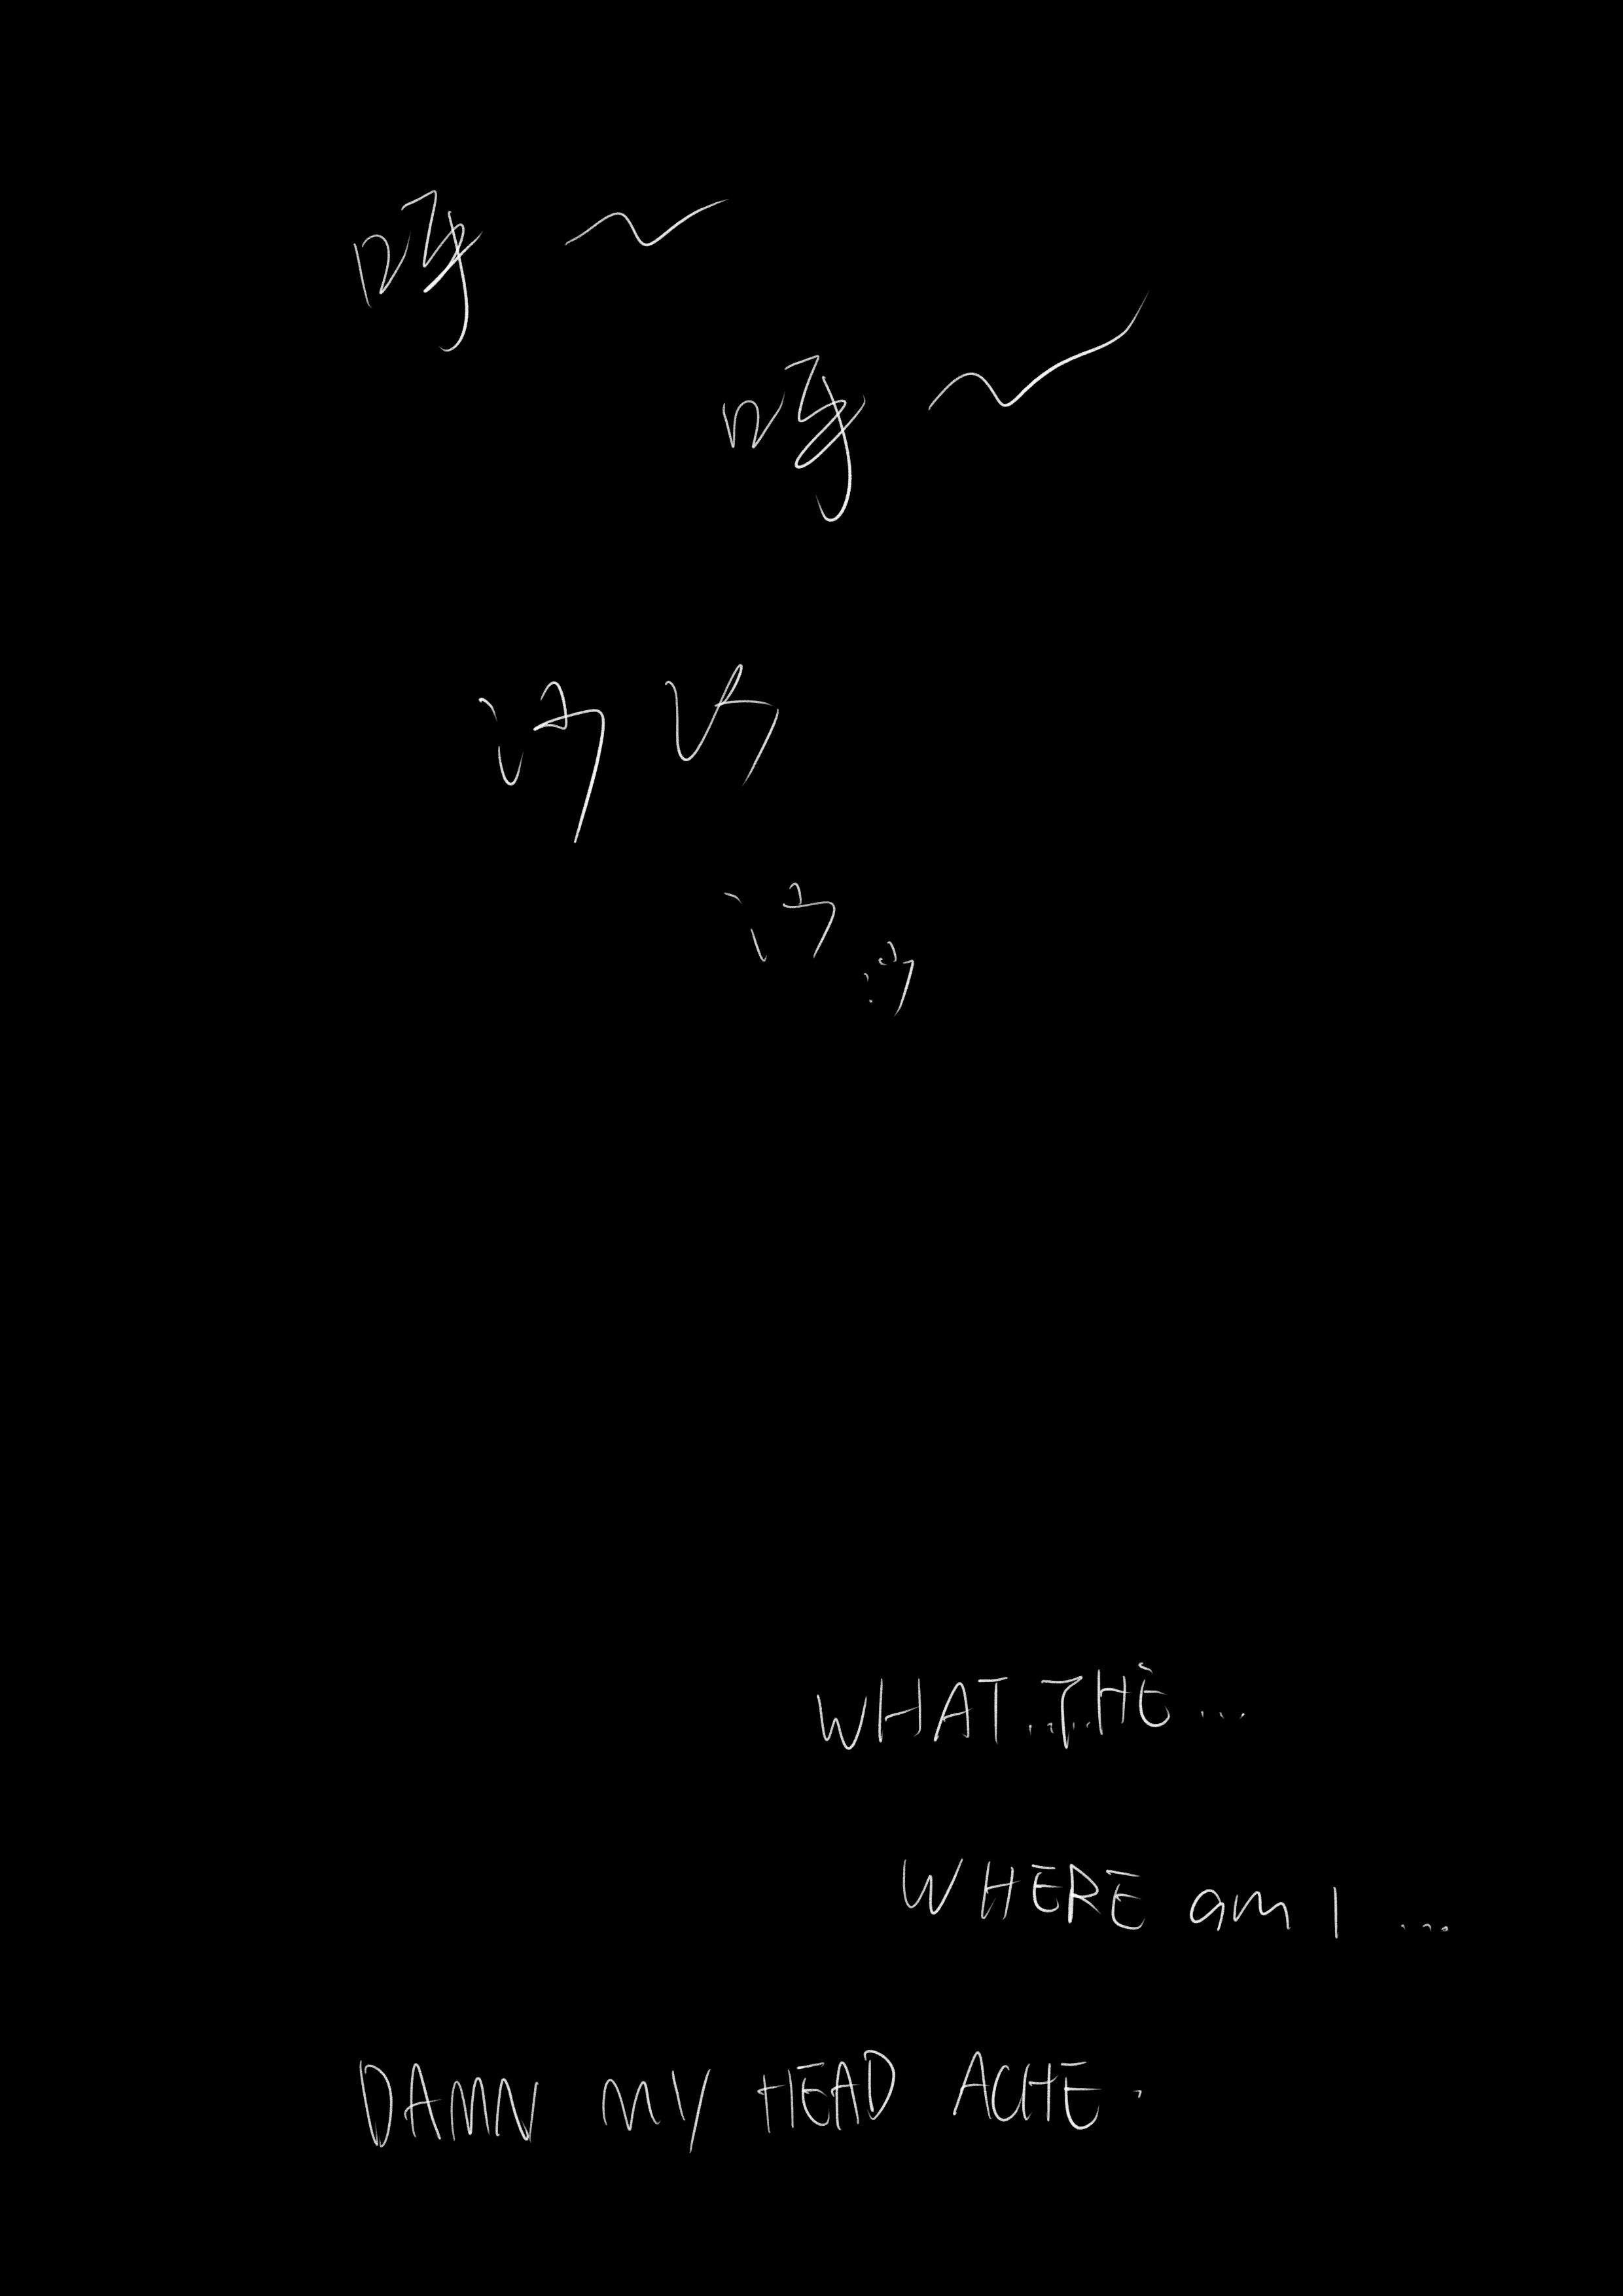 呼~
呼~
沙沙
沙沙
WHAT...THE...
WHERE am I ...
DAMN MY HEAD ACHE.